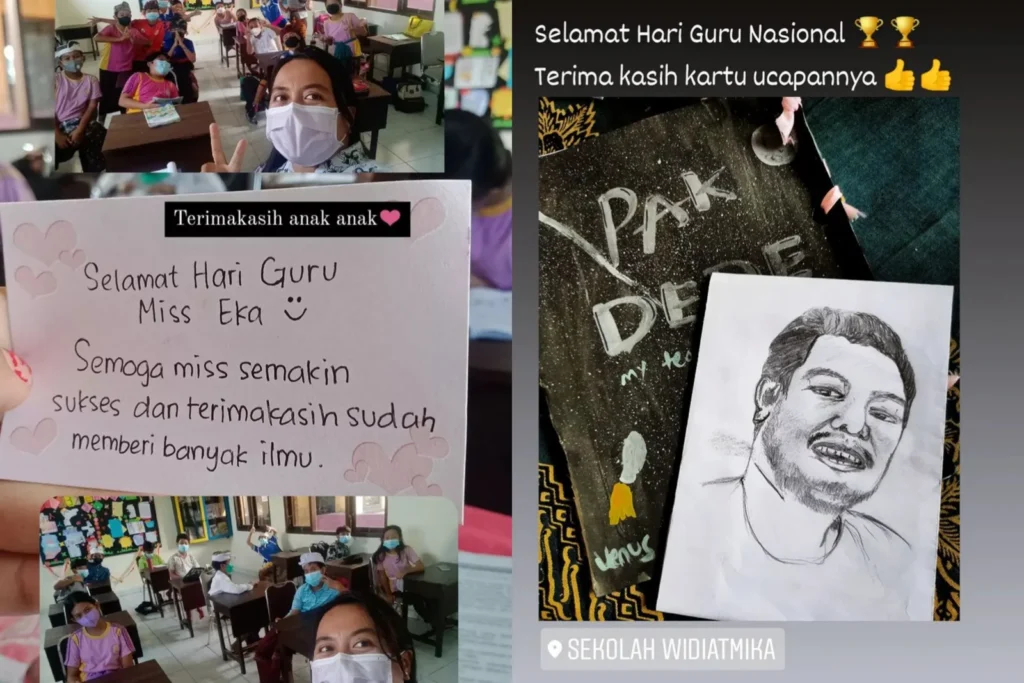 Terimakasih anak anak
Selamat Hari Guru
Miss Eka
Semoga miss semakin
sukses dan terimakasih sudah
memberi banyak ilmu.
Selamat Hari Guru Nasional
Terima kasih kartu ucapannya
PAK
DEDE
my
venus
SEKOLAH WIDIATMIKA